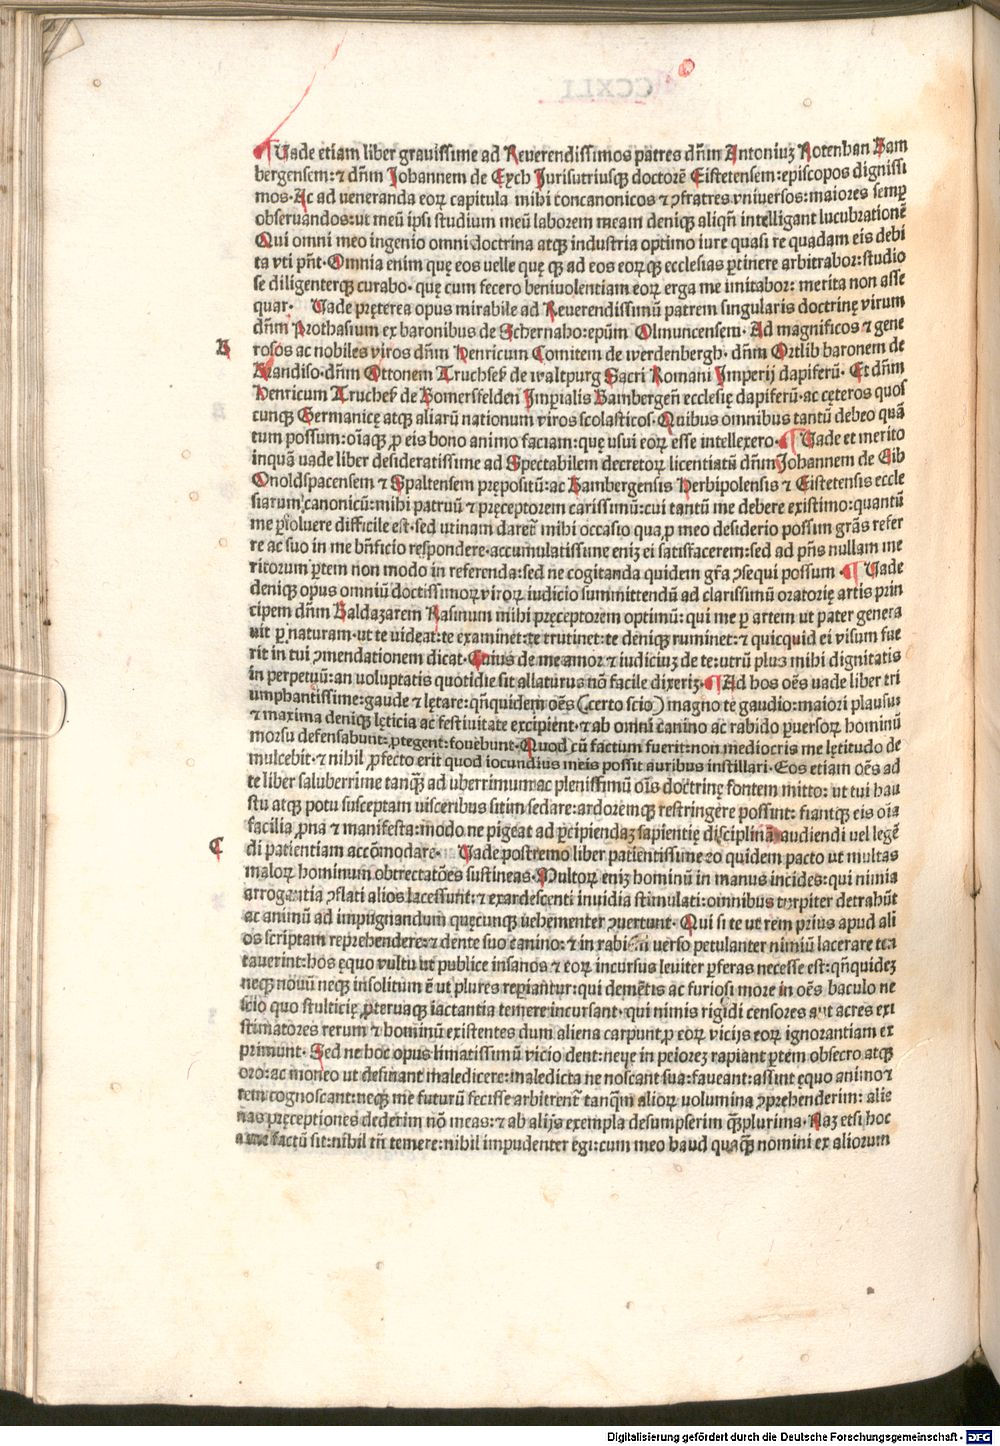 Uade etiam liber grauissime ad Reuerendissimos patres dn̄m Antoniuȝ Rotenhan Bam
bergensem:⁊ dn̄m Johannem de Eych Jurisutriusqꝫ doctorē Eistetensem:episcopos dignissi
mos·Ac ad ueneranda eoꝝ capitula mihi concanonicos ⁊ ꝯfratres vniuersos:maiores semꝑ
obseruandos:ut meū ipsi studium meū laborem meam deniqꝫ aliqn̄ intelligant lucubrationē
Qui omni meo ingenio omni doctrina atqꝫ industria optimo iure quasi re quadam eis debi
ta vti pn̄t·Omnia enim quę eos uelle quę qꝫ ad eos eoꝝqꝫ ecclesias ꝑtinere arbitrabor:studio
se diligenterqꝫ curabo·quę cum fecero beniuolentiam eoꝝ erga me imitabor: merita non asse
quar· Uade pręterea opus mirabile ad Reuerendissimū patrem singularis doctrinę virum
dn̄m Prothasium ex baronibus de Schernaho:epūm Olmuncensem· Ad magnificos ⁊ gene
B
rosos ac nobiles viros dn̄m Henricum Comitem de werdenbergh· dn̄m Ortlib baronem de
Brandiso·dn̄m Ottonem Truchseß de waltpurg Sacri Romani Imperij dapiferū· Et dn̄m
Henricum Trucheß de Bomersfelden Imꝑialis Bambergen̄ ecclesię dapiferū·ac cęteros quos
cunqꝫ Germanicę atqꝫ aliarū nationum viros scolasticos·Quibus omnibus tantū debeo quā
tum possum:oīaqꝫ ꝓ eis bono animo faciam:quę usui eoꝝ esse intellexero·Uade et merito
inquā uade liber desideratissime ad Spectabilem decretoꝝ licentiatū dn̄m Johannem de Eib
Onoldspacensem ⁊ Spaltensem prępositū:ac Bambergensis Herbipolensis ⁊ Eistetensis eccle
siarum canonicū:mihi patruū ⁊ pręceptorem carissimū:cui tantū me debere existimo:quantū
me ꝑsoluere difficile est·sed utinam daret̄ mihi occasio qua ꝓ meo desiderio possim grās refer
re ac suo in me bn̄ficio respondere·accumulatissime eniȝ ei satisfacerem:sed ad pn̄s nullam me
ritorum ꝑtem non modo in referenda:sed ne cogitanda quidem gr̄a ꝯsequi possum · Uade
deniqꝫ opus omniū doctissimoꝝ viroꝝ iudicio summittendū ad clarissimū oratorię artis prin
cipem dn̄m Baldazarem Rasinum mihi pręceptorem optimū: qui me ꝑ artem ut pater genera
uit ꝑ naturam·ut te uideat:te examinet:te trutinet:te deniqꝫ ruminet:⁊ quicquid ei visum fue
rit in tui ꝯmendationem dicat·Cuius de me amor ⁊ iudiciuȝ de te:utrū plus mihi dignitatis
in perpetuū:an voluptatis quotidie sit allaturus nō facile dixeriȝ·Ad hos oēs uade liber tri
umphantissime:gaude ⁊ lętare:qn̄quidem oēs (certo scio) magno te gaudio:maiori plausu:
⁊ maxima deniqꝫ lęticia ac festiuitate excipient·⁊ ab omni canino ac rabido ꝑuersoꝝ hominū
morsu defensabunt:ꝓtegent:fouebunt·Quod cū factum fuerit:non mediocris me lętitudo de
mulcebit·⁊ nihil ꝓfecto erit quod iocundius meis possit auribus instillari·Eos etiam oēs ad
te liber saluberrime tanqꝫ̄ ad uberrimum ac plenissimū oīs doctrinę fontem mitto: ut tui hau
stu atqꝫ potu susceptam uisceribus sitim sedare:ardoremqꝫ restringere possint: fiantqꝫ eis oīa
facilia ꝓna ⁊ manifesta:modo ne pigeat ad ꝑcipiendaȝ sapientię disciplinā audiendi uel legē
C
di patientiam accōmodare· Uade postremo liber patientissime eo quidem pacto ut multas
maloꝝ hominum obtrectatōes sustineas·Multoꝝ eniȝ hominū in manus incides:qui nimia
arrogantia ꝯflati alios lacessunt:⁊ exardescenti inuidia stimulati:omnibus turpiter detrahūt
ac animū ad impugnandum quęcunqꝫ uehementer ꝯuertunt· Qui si te ut rem prius apud ali
os scriptam reprehendere:⁊ dente suo canino:⁊ in rabiem uerso petulanter nimiū lacerare ten
tauerint:hos ęquo vultu ut publice insanos ⁊ eoꝝ incursus leuiter ꝑferas necesse est:qn̄quideȝ
neqꝫ nouū neqꝫ insolitum ē ut plures repiantur:qui demētis ac furiosi more in oēs baculo ne
scio quo stulticię ꝓteruaqꝫ iactantia temere incursant·qui nimis rigidi censores aut acres exi
stimatores rerum ⁊ hominū existentes dum aliena carpunt ꝓ eoꝝ vicijs eoꝝ ignorantiam ex
primunt· Sed ne hoc opus limatissimū vicio dent:neue in peioreȝ rapiant ꝑtem obsecro atqꝫ
oro:ac moneo ut desinant maledicere:maledicta ne noscant sua:faueant:assint ęquo animo ⁊
rem cognoscant:neqꝫ me futurū fecisse arbitrent̄ tanqꝫ̄m alioꝝ uolumina ꝯprehenderim: alie
nas pręceptiones dederim nō meas:⁊ ab alijs exempla desumpserim qꝫ̄plurima·Naȝ etsi hoc
a me factū sit:nihil tn̄ temere:nihil impudenter egi:cum meo haud quaqꝫ̄ nomini ex aliorum
CCXLI
Digitalisierung gefördert durch die Deutsche Forschungsgemeinschaft - DFG